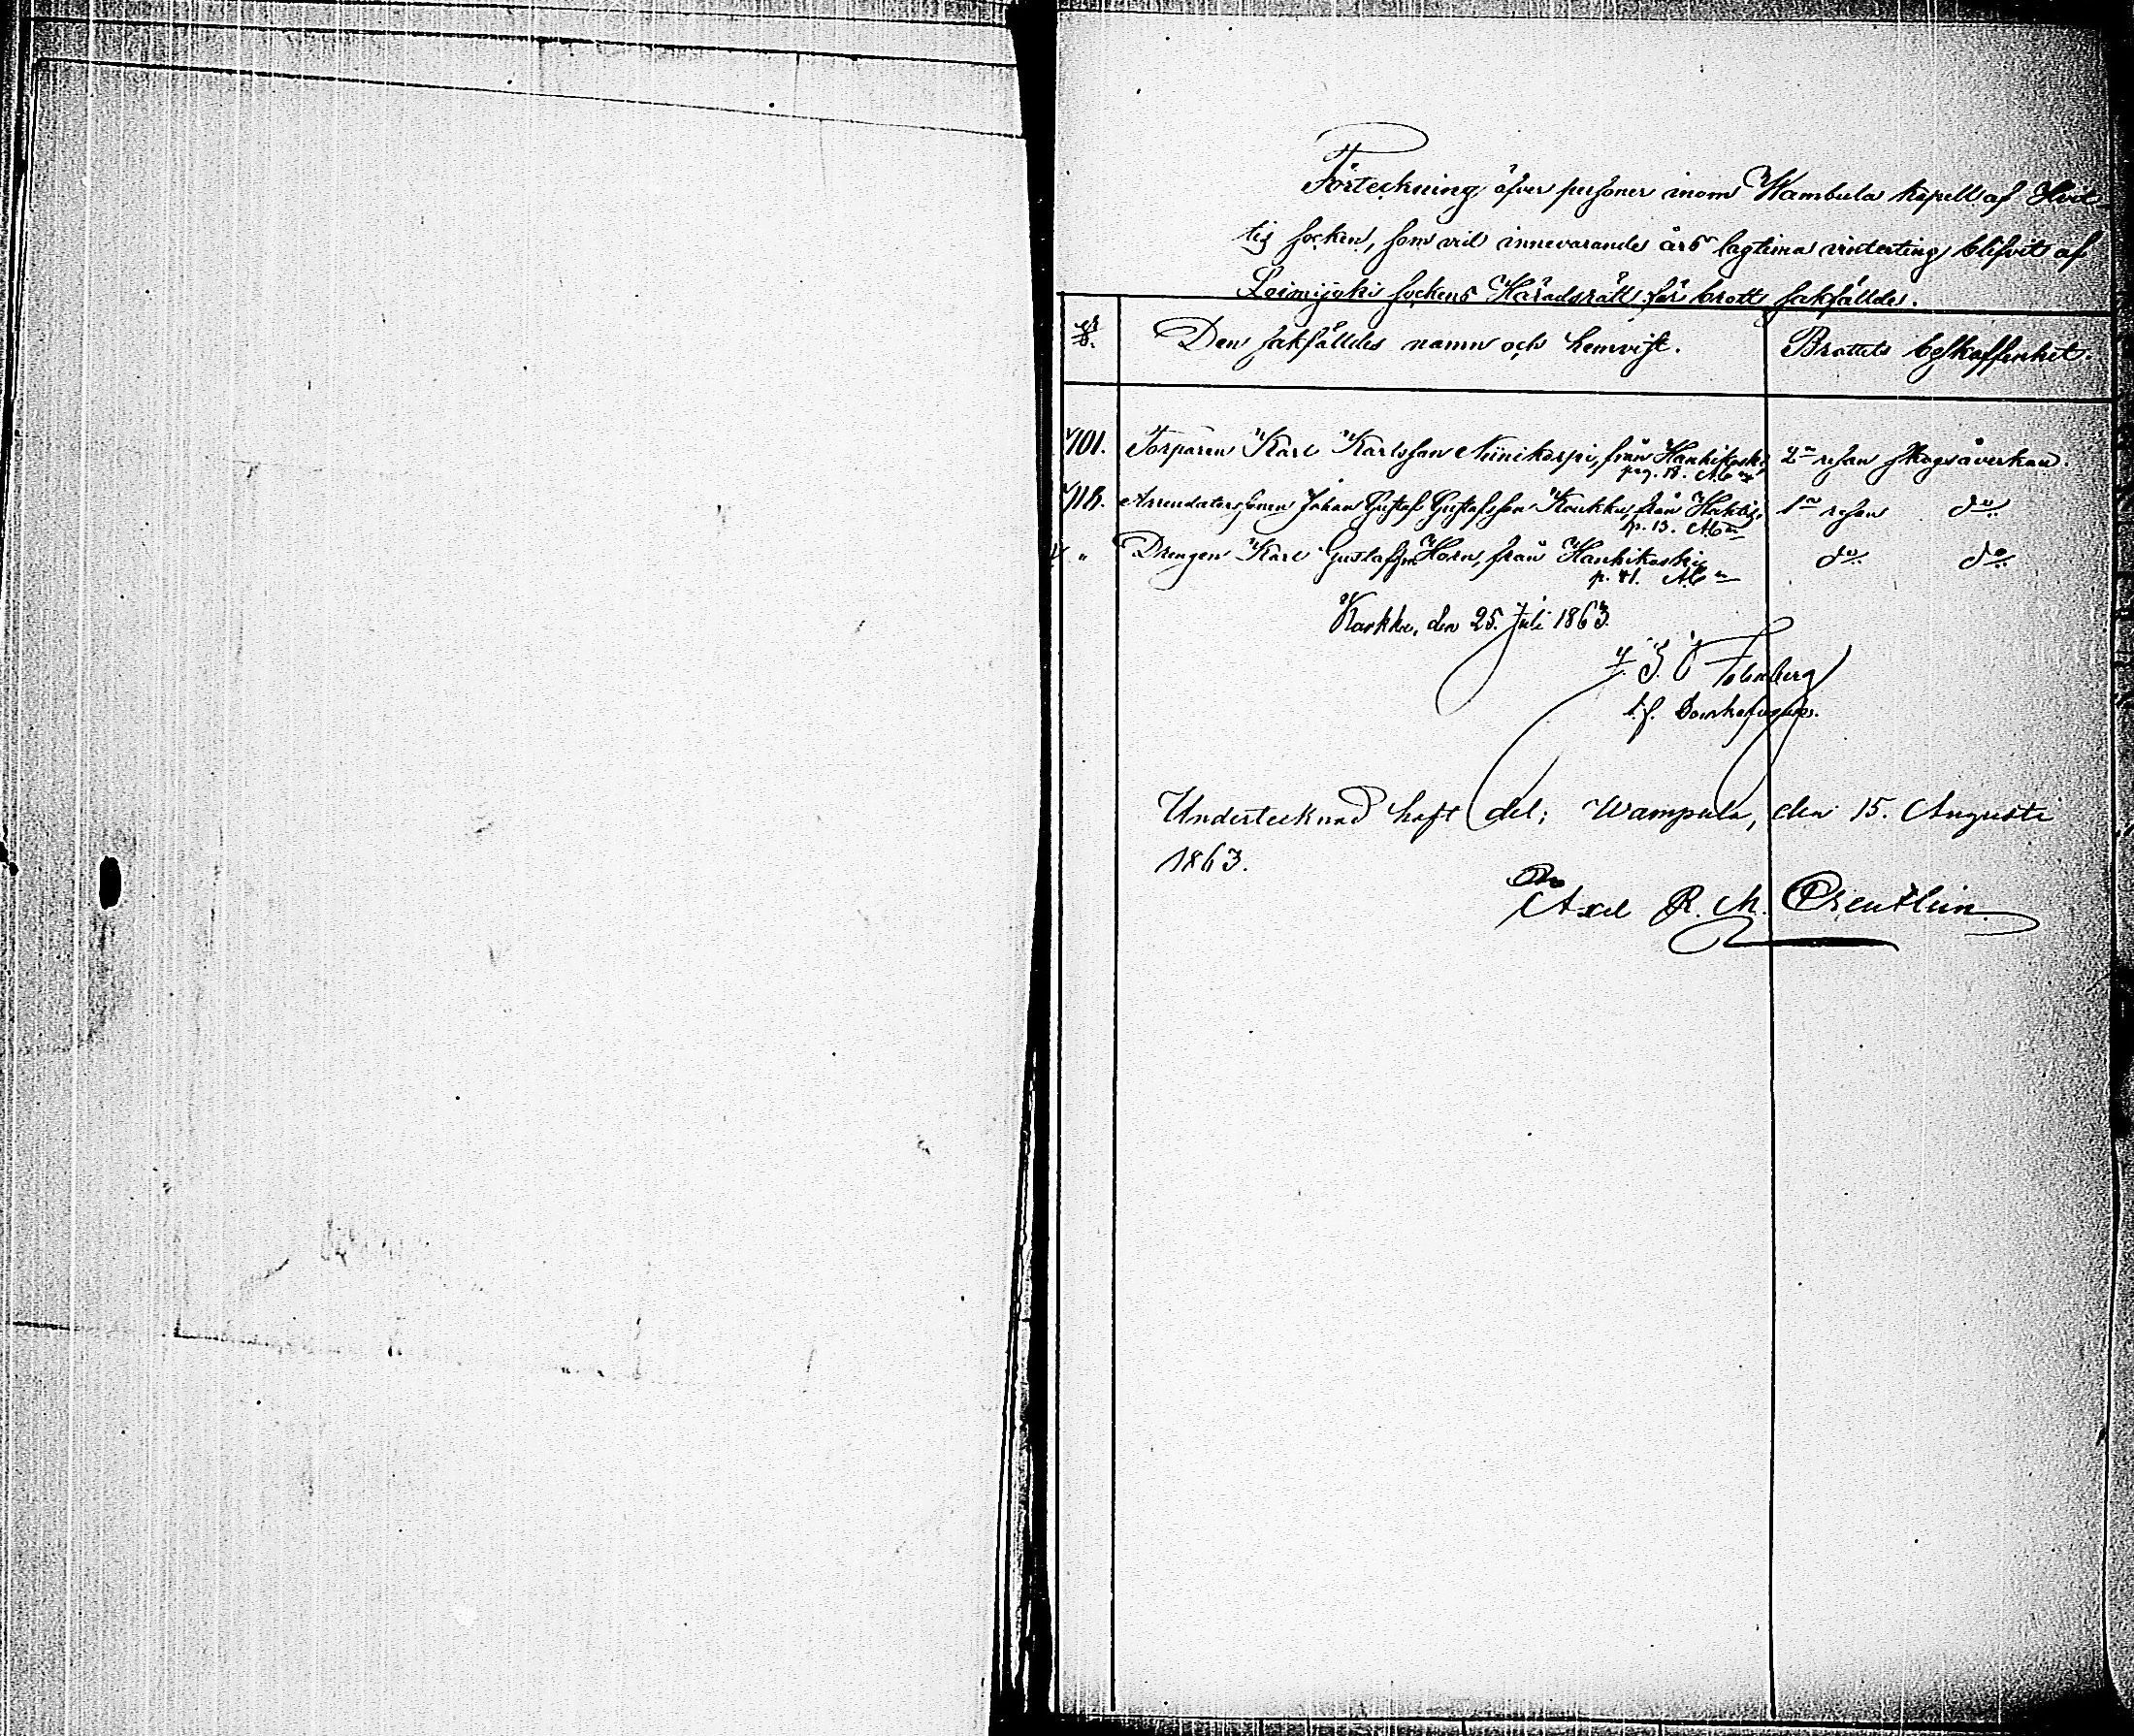 Förteckning öfver personer inom Wambula kapell af Hvit-
tis socken, som vid innevarande års lagtima vinterting blifvit af
Loimijoki sockens Häradsrätt för brott sakfällde.
§. Den sakfälldes namn och hemvist. Brottets beskaffenhet.
101. Torparen Karl Karlsson Niinikorpi, från Hanhikoski 2dra resan skogsåverkan.
pag. 18.
118. Arrendatorssonen Johan Gustaf Gustafsson Koukku, från 1sta resan do
p. 13.
" Drengen Karl Gustafsson Horn, från Hanhikoski do do
p. 41.
Karkku, den 25. Juli 1863.
t. f. Domhafvande.
Undertecknad haft del; Wampula, den 15. Augusti
1863.
Axel R. M. Creutlein.